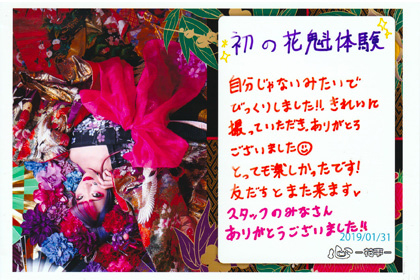 初の花魁体験
自分じゃないみたいで
びっくりしました!! きれいに
撮っていただき、ありがとう
ございました☺
とっても楽しかったです!
友だちとまた来ます。
スタッフのみなさん
ありがとうございました!!
2019/01/31